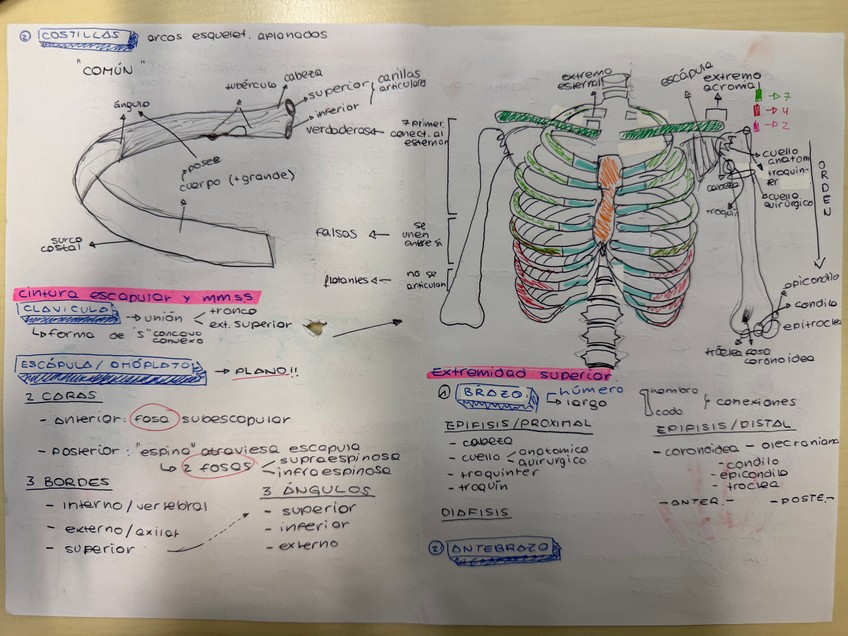 ② COSTILLAS arcos esquelet. aplanados
"COMÚN"
ángulo
tubérculo
cabeza
superior
inferior
carillas articulares
posee
cuerpo (+grande)
surco costal
verdaderas ← 7 primer. conect. al esternón
falsas ← se unen entre sí
flotantes ← no se articulan
extremo esternal
escápula
extremo acromial
→ 7
→ 4
→ 2
ORDEN
cuello anatom
troquinter
cuello quirúrgico
cabeza
troquin
epicondilo
condilo
epitroclea
tróclea
fosa coronoidea
cintura escapular y mm.ss
CLAVÍCULA → unión < tronco
ext. superior
↳ forma de "S" concavo
convexo
ESCÁPULA / OMÓPLATO → PLANO!!
2 CARAS
- anterior: fosa subescapular
- posterior: "espina" atraviesa escapula
↳ 2 fosas < supraespinosa
infraespinosa
3 BORDES
- interno/vertebral
- externo/axilar
- superior
3 ÁNGULOS
- superior
- inferior
- externo
Extremidad superior
① BRAZO: húmero
largo
hombro
codo
conexiones
EPIFISIS/PROXIMAL
- cabeza
- cuello < anatomico
quirurgico
- troquinter
- troquín
DIAFISIS
EPIFISIS/DISTAL
- coronoidea - olecraniana
- condilo
- epicondilo
- troclea
- ANTER. -
- POSTE. -
② ANTEBRAZO